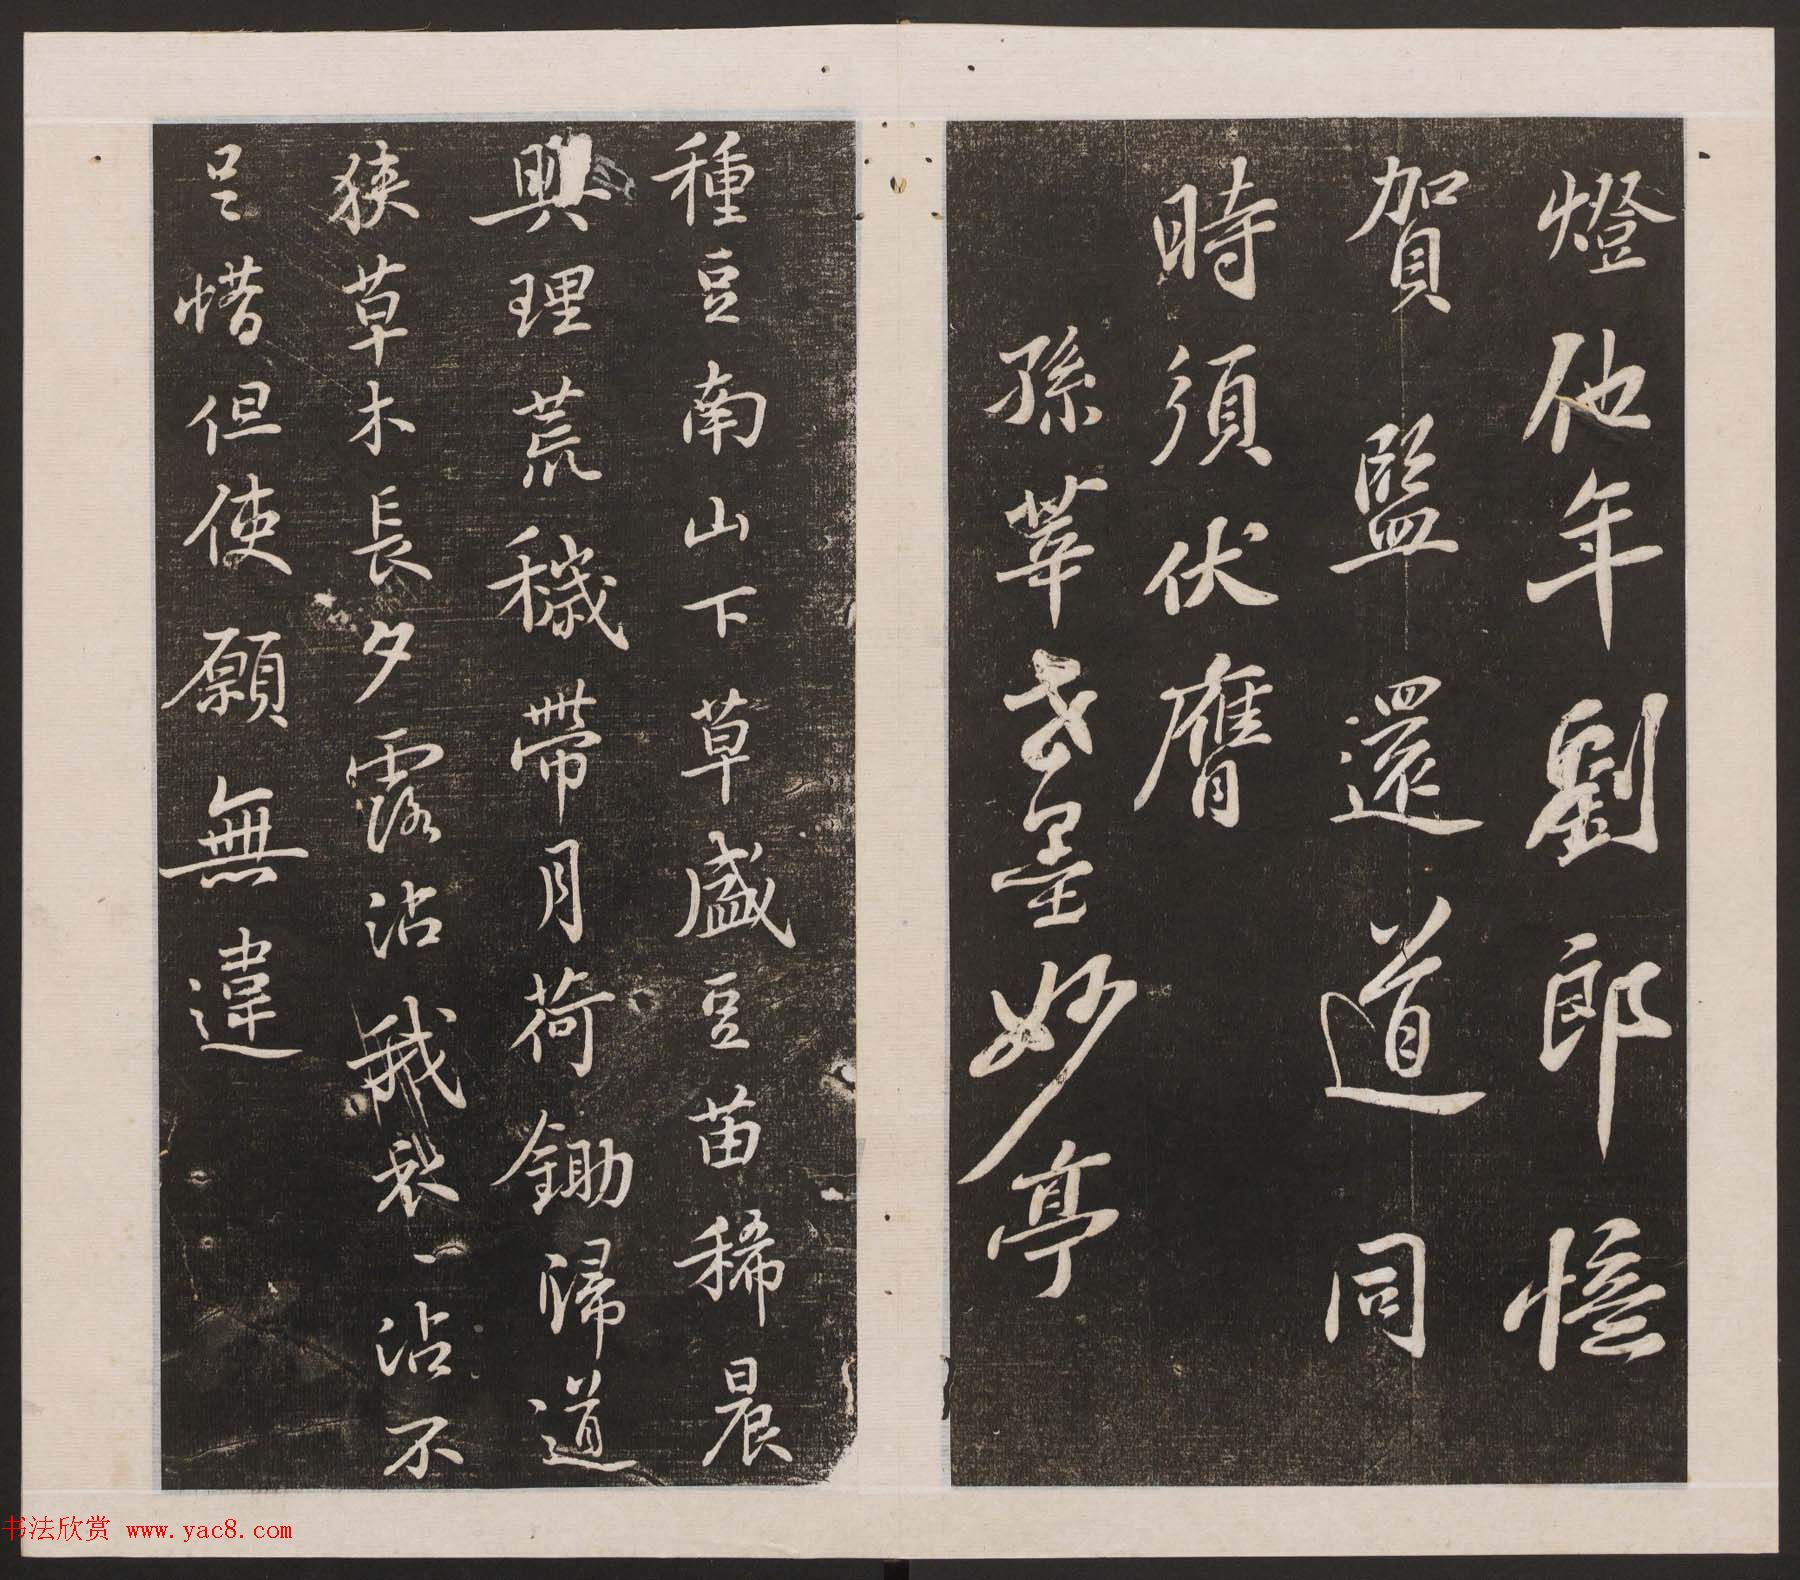 燈他年劉郎憶
賀監還道同
時須伏膺
孫莘老墨妙亭
種豆南山下草盛豆苗稀晨
興理荒穢帶月荷鋤歸道
狹草木長夕露沾我衣〻沾不
足惜但使願無違
书法欣赏 www.yac8.com